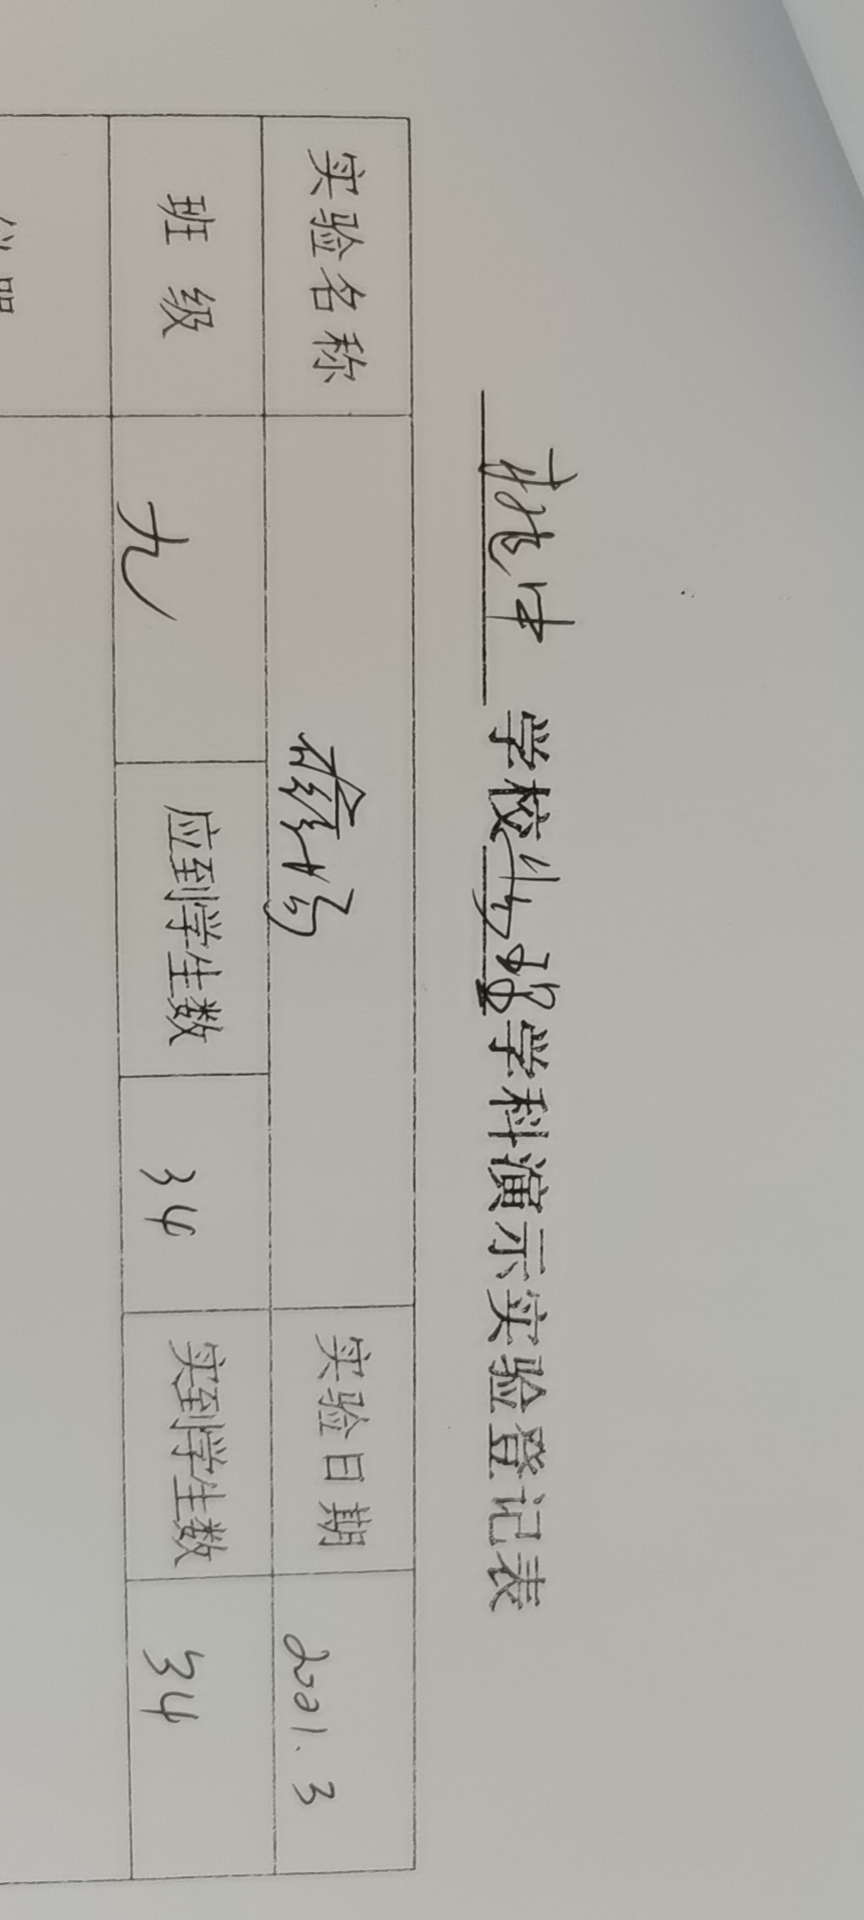 学校物理学科演示实验登记表
实验名称 磁场 实验日期 2021.3
班级 九 应到学生数 34 实到学生数 34
仪器